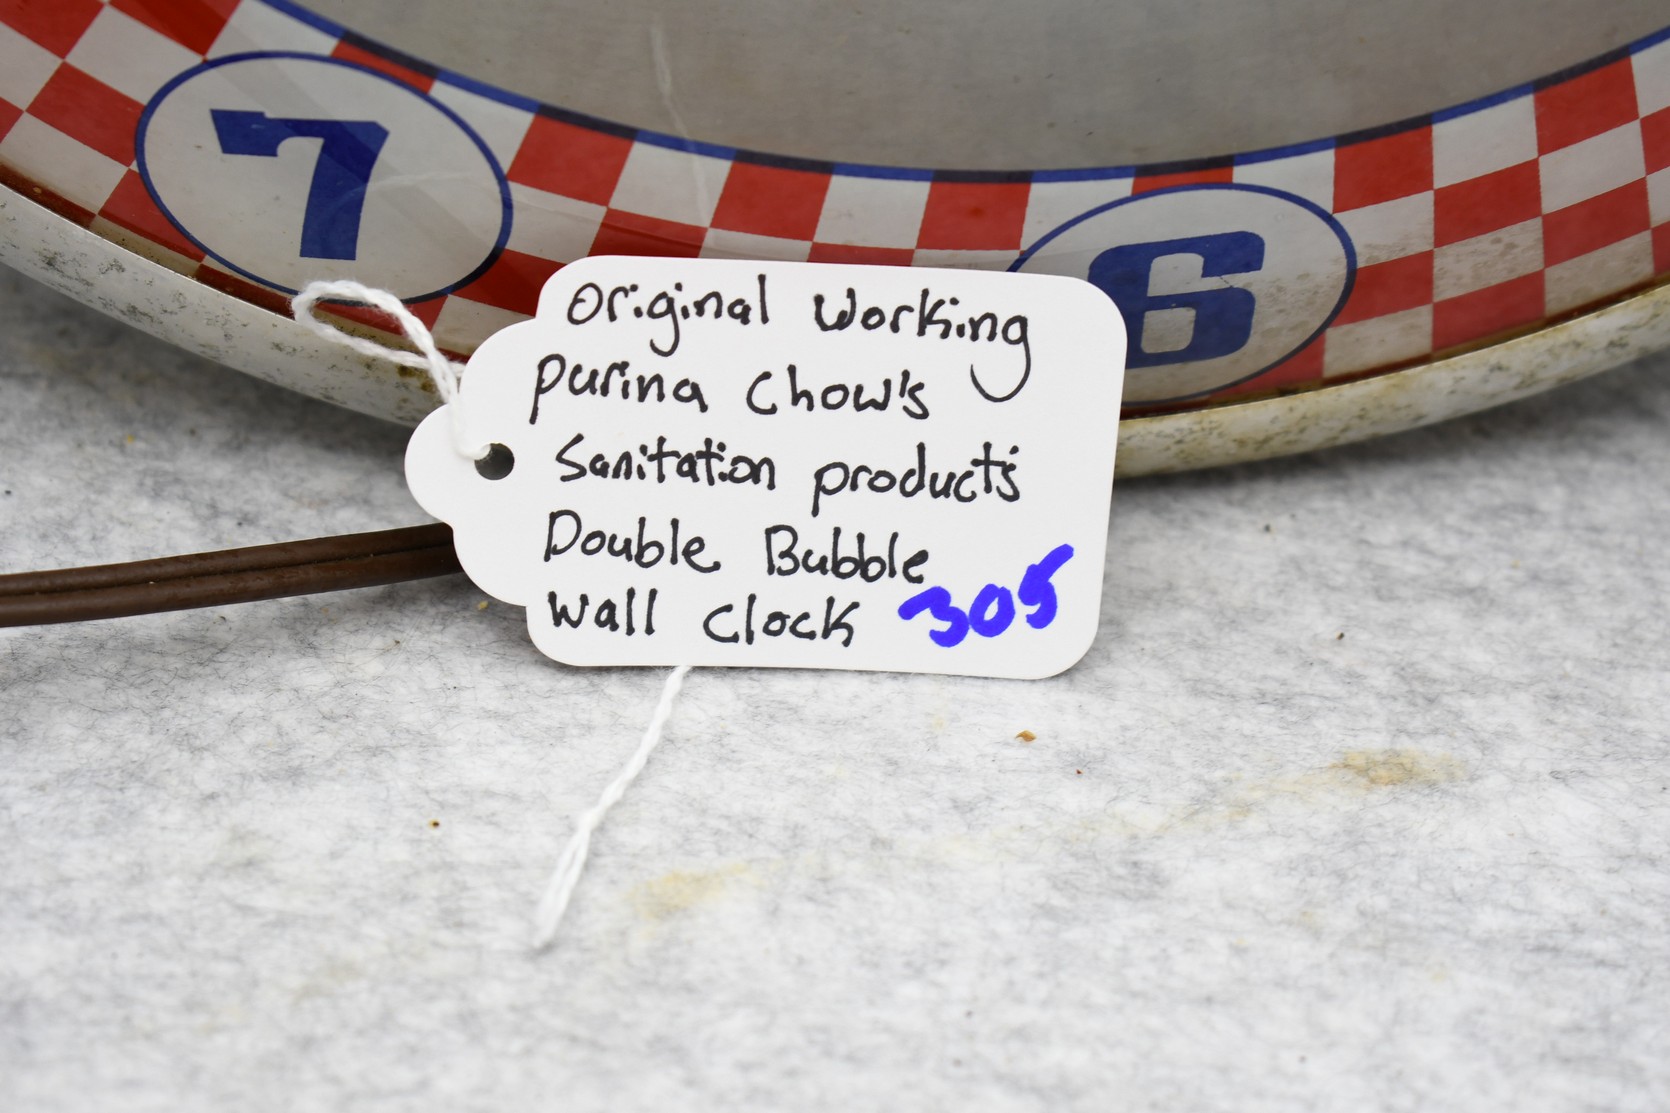 7
6
Original Working
Purina Chow's
Sanitation product's
Double Bubble
Wall Clock 305